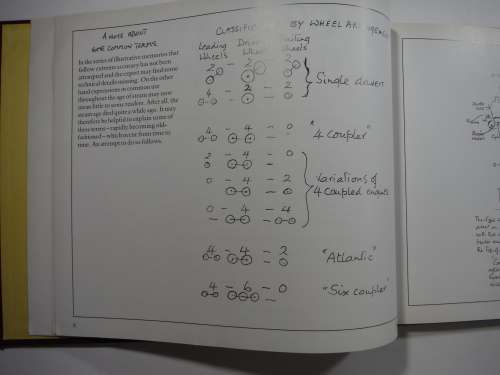 A NOTE ABOUT
SOME COMMON TERMS
In the series of illustrative memories that
follow extreme accuracy has not been
attempted and the expert may find some
technical details missing. On the other
hand expressions in common use
throughout the age of steam may now
mean little to some readers. After all, the
steam age died quite a while ago. It may
therefore be helpful to explain some of
these terms—rapidly becoming old-
fashioned—which occur from time to
time. An attempt to do so follows.
CLASSIFIC BY WHEEL
Leading
Wheels Wheels Wheels
2 - 2 - 2
4 - 2 - 2
Single
4 - 4 - 0
"4 Coupler"
2 - 4 - 0
0 - 4 - 2
0 - 4 - 4
Variations of
4 Coupled
4 - 4 - 2
"Atlantic"
4 - 6 - 0
"Six coupler"